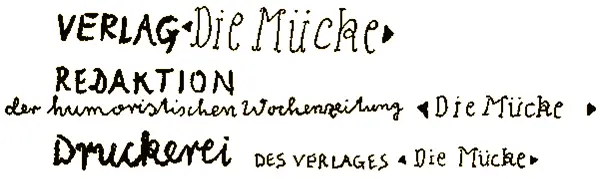 VERLAG ◂Die Mücke▸
REDAKTION
der humoristischen Wochenzeitung ◂Die Mücke ▸
Druckerei DES VERLAGES ◂Die Mücke▸